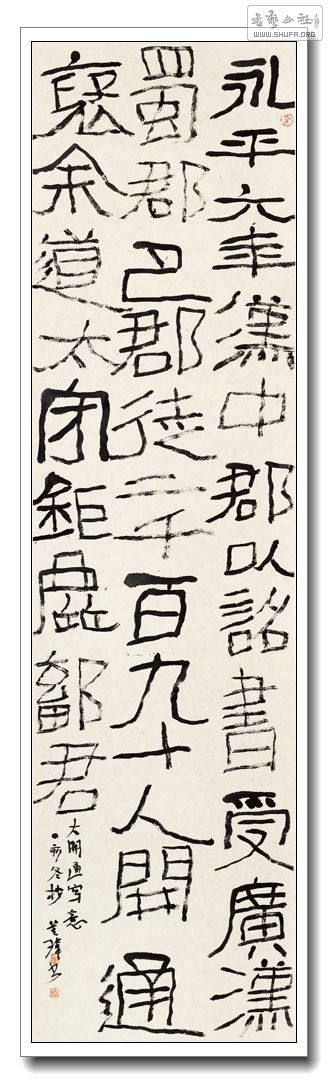 書藝公社
WWW.SHUFA.ORG
永平六年漢中郡以詔書受廣漢
蜀郡巴郡徒二千百九十人開通
褒余道太守鉅鹿鄐君
大開通寫意
冬抄